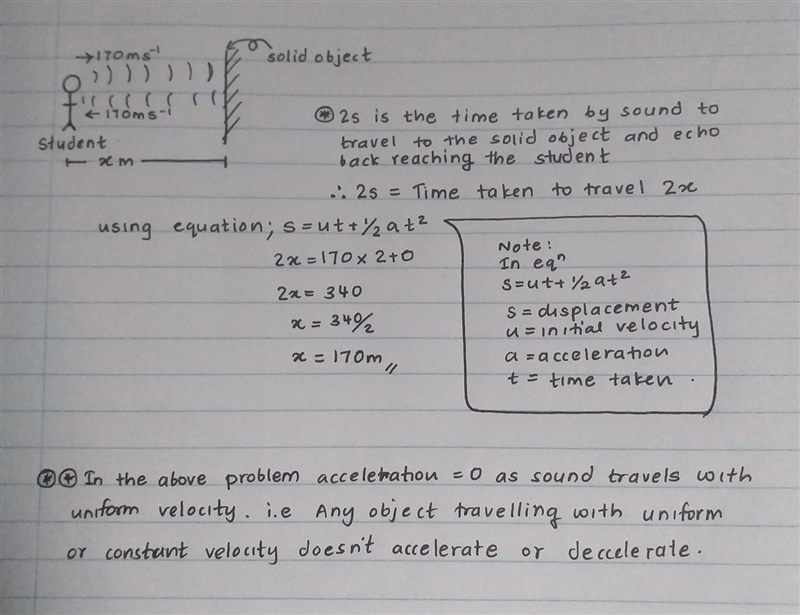 →170ms⁻¹
solid object
←170ms⁻¹
student
x m
⊛ 2s is the time taken by sound to
travel to the solid object and echo
back reaching the student
∴ 2s = Time taken to travel 2x
using equation; s = ut + 1/2 at²
2x = 170 × 2 + 0
2x = 340
x = 340/2
x = 170m //
Note:
In eqⁿ
s = ut + 1/2 at²
s = displacement
u = initial velocity
a = acceleration
t = time taken .
⊛⊛ In the above problem acceleration = 0 as sound travels with
uniform velocity. i.e Any object travelling with uniform
or constant velocity doesn't accelerate or deccelerate.